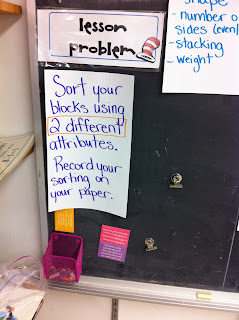 lesson
problem
Sort your
blocks using
2 different
attributes.
Record your
sorting on
your paper.
shape
- number o
sides (even/
- stacking
- weight